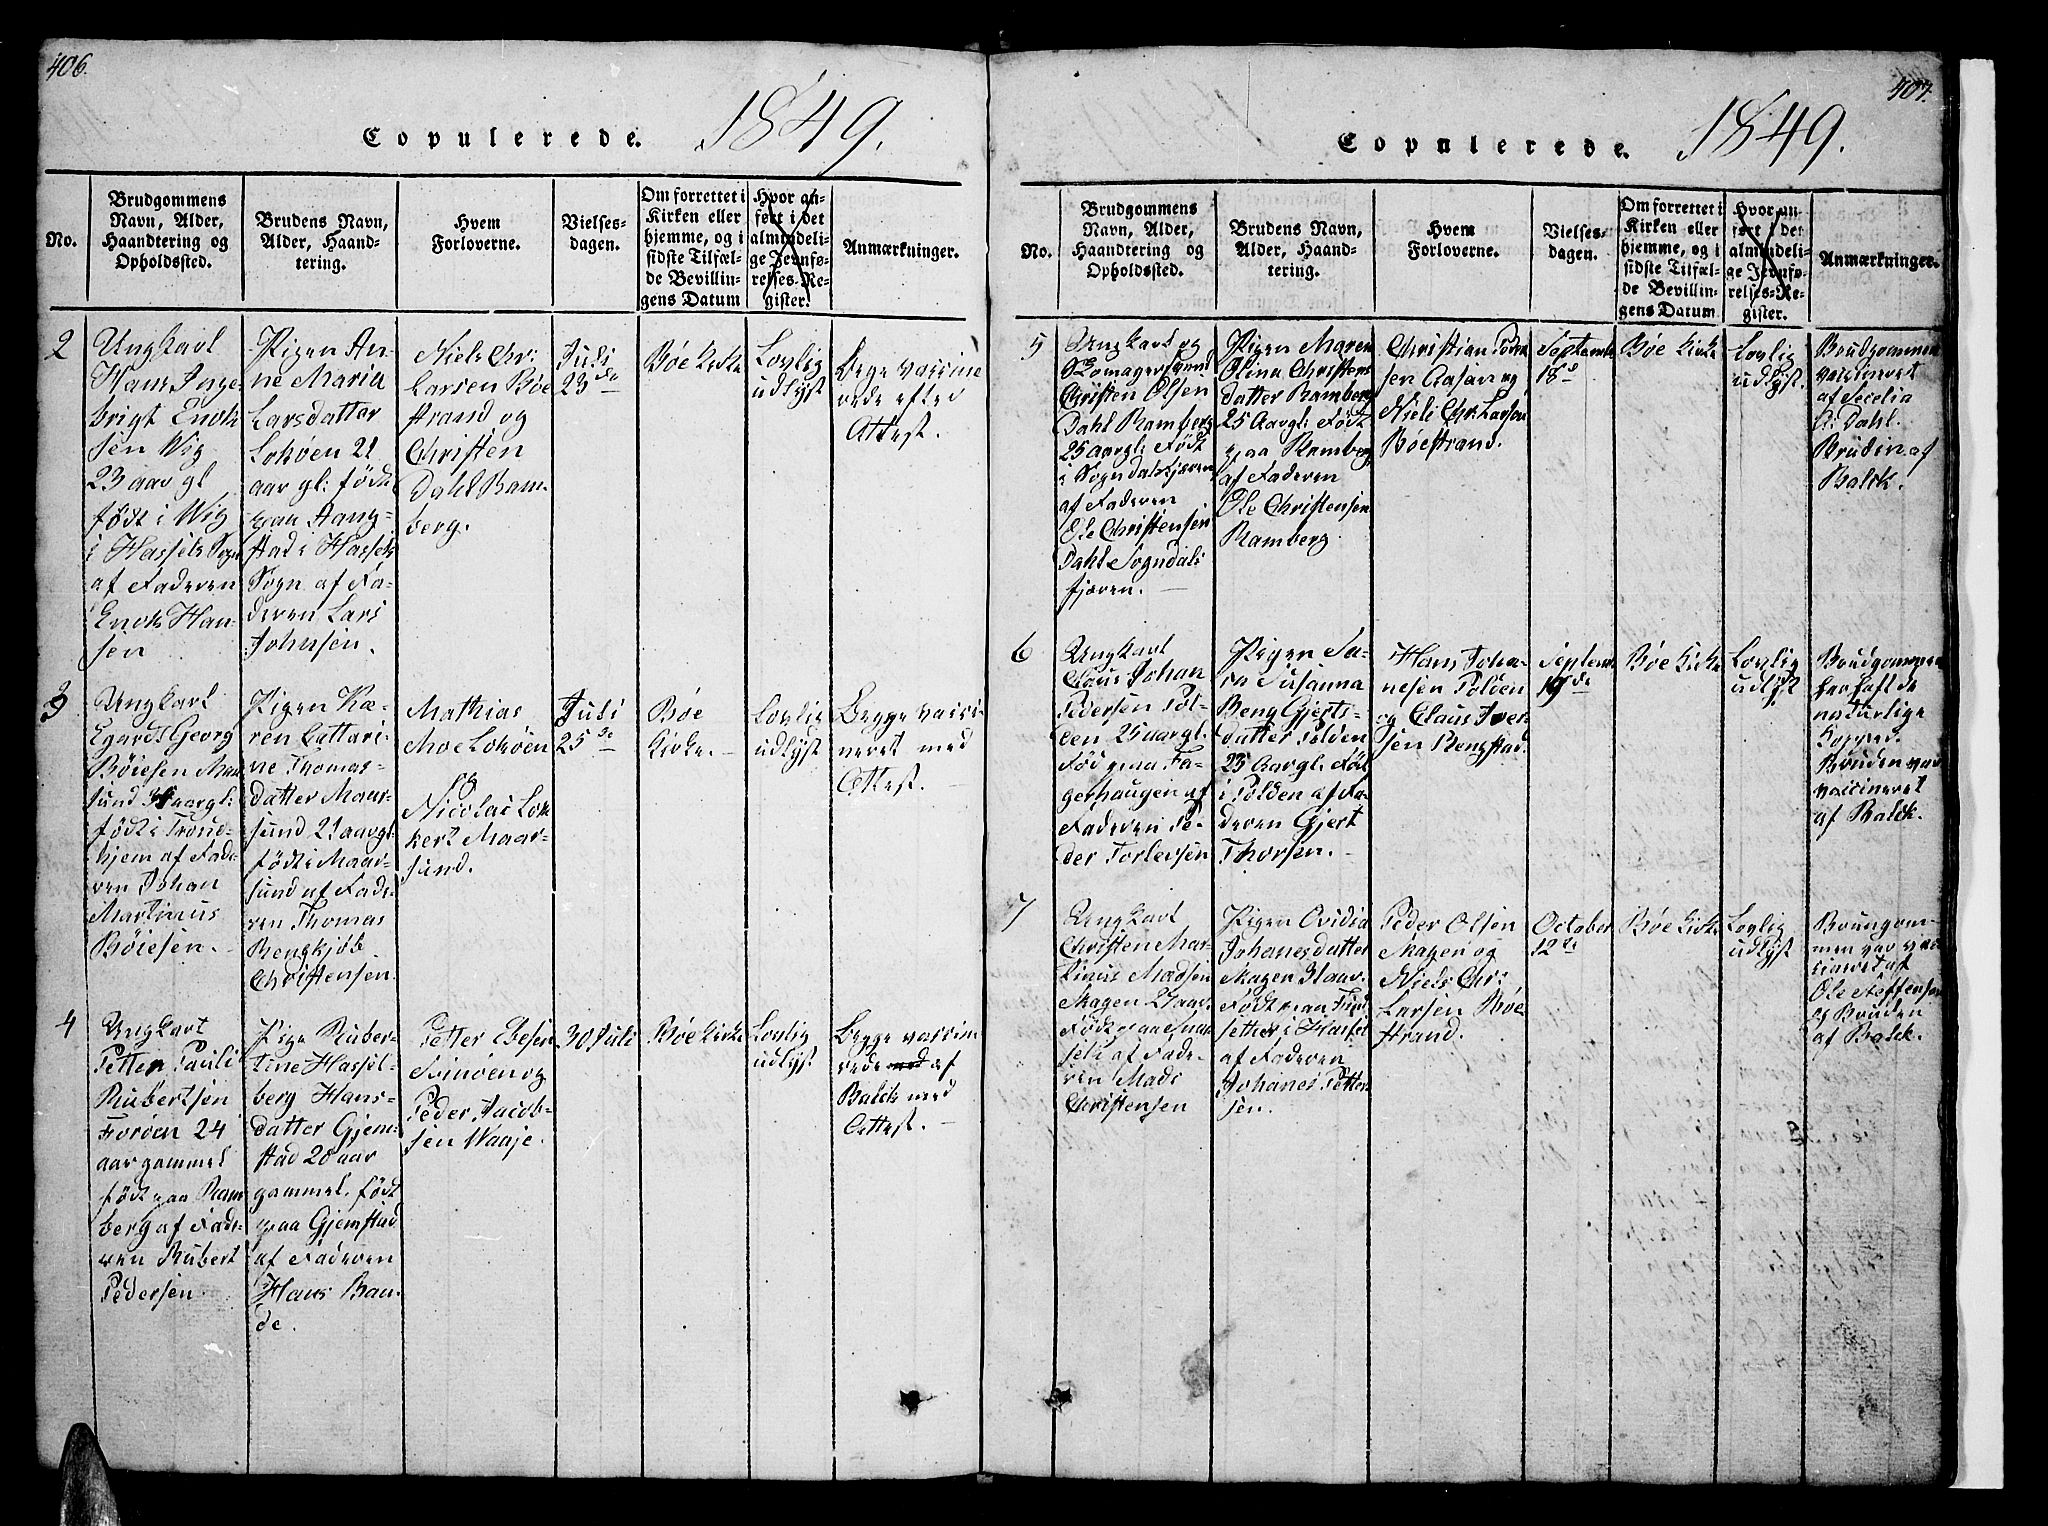 406.
Copulerede. 1849.
No.
Brudgommens
Navn, Alder,
Haandtering og
Opholdssted.
Brudens Navn,
Alder, Haand-
tering.
Hvem
Forloverne.
Vielses-
dagen.
Om forrettet i
Kirken eller
hjemme, og i
sidste Tilfæl-
de Bevillin-
gens Datum
Hvor an-
ført i det
almindeli-
ge Jevnfø-
relses-Re-
gister.
Anmærkninger.
2
Ungkarl
Hans Inge
brigt Enok
sen Wig
23 aar gl
født i Wig
i Hassels Sogn
af Faderen
Enok Han-
sen
Pigen An-
ne Maria
Larsdatter
Lokøen 21
aar gl: født
paa Aang-
stad i Hassels
Sogn af Fa-
deren Lars
Johnsen.
Niels Chr:
Larsen Bøe
strand og
Christen
Dahl Ram-
berg.
Juli
23de
Bøe Kirke
Lovlig
udlyst
Bege vaccine
rede efter
Attest.
3
Ungkarl
Egardt Georg
Bøiesen Maar
sund aargl:
født i Trond-
hjem af Fade-
ren Johan
Martinus
Bøiesen.
Pigen Ka-
ren Cattari-
ne Thomas-
datter Maar-
sund 21 aargl
født i Maar-
sund af Fade-
ren Thomas
Bengkjøb
Christensen.
Mathias
Moe Lokøen
og
Nicolai Lok
kert Maar-
sund.
Juli
25de
Bøe
Kirke.
Lovlig
udlyst
Begge vacci-
neret med
Attest.
4
Ungkarl
Petter Pauli
Rubertsen
Forøen 24
aar gammel
født paa Ram
berg af Fade-
ren Rubert
Pedersen.
Pige Ruber-
tine Hassel-
berg Hans-
datter Gjem-
stad 20 aar
gammel. født
paa Gjemstad
af Faderen
Hans Ban-
de.
Petter Ebesen
Svinøen og
Peder Jacob-
sen Waaje.
30 Juli
Bøe Kirke
Lovlig
udlyst
Begge vaccine
rede med af
Balck med
Attest.
407.
Copulerede. 1849.
No.
Brudgommens
Navn, Alder,
Haandtering og
Opholdssted.
Brudens Navn,
Alder, Haand-
tering.
Hvem
Forloverne.
Vielses-
dagen.
Om forrettet i
Kirken eller
hjemme, og i
sidste Tilfæl-
de Bevillin-
gens Datum
Hvor an-
ført i det
almindeli-
ge Jevnfø-
relses-Re-
gister.
Anmærkninger.
5
Ungkarl og
Skomagersvend
Christen Olsen
Dahl Ramberg
25 aargl: Født
i Sogndalsfjæren
af Faderen
Ole Christensen
Dahl Sogndals
fjæren.
Pigen Maren
Olina Christens
datter Ramberg
25 Aargl: Født
paa Ramberg
af Faderen
Ole Christensen
Ramberg
Christian Peder
sen Aasan og
Niels Chr: Larsen
Boestrand.
Septembr
18de
Bøe Kirke
Lovlig
udlyst.
Brudgommen
vaccineret
af Secelia
A: Dahl.
Bruden af
Balck.
6
Ungkarl
Claus Johan
Pedersen Pol-
den 25 aargl.
Fød paa Fa-
gerhaugen af
Faderen Pe-
der Torlevsen
Pigen Sa-
ra Susanna
Beng Gjerts-
datter Polden
23 Aargl: Fød
i Polden af Fa-
deren Gjert
Thorsen.
Hans Joha-
nesen Polden
og Claus Iver-
sen Rengstad.
Septembr
19de
Bøe Kirke
Lovlig
udlyst
Brudgommen
har haft de
naturlige
Kopper.
Bruden var
vaccineret
af Balck.
7
Ungkarl
Christen Mar-
tinus Madsen
Skagen 27 aar.
Født paa Snar
seth af Fade-
ren Mads
Christensen
Pigen Ovidia
Johanesdatter
Skagen 31 aar.
Født paa Find
setter i Hassel
af Faderen
Johanes Petter
sen.
Peder Olsen
Skagen og
Niels Chr:
Larsen Bøe
strand.
October
12te
Bøe Kirke
Lovlig
udlyst
Brudgom-
men var vac
cineret af
Ole Steffensen
og Bruden
af Balck.